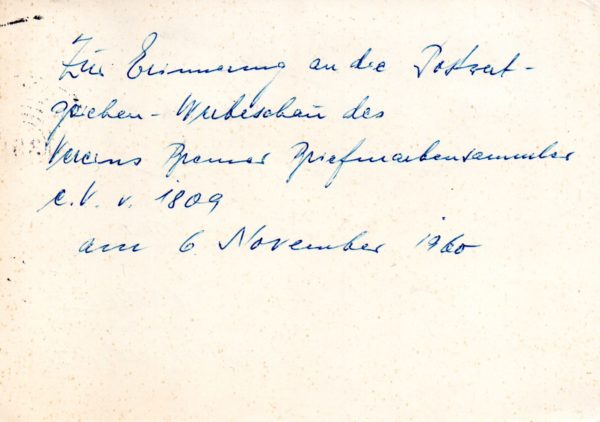 Zur Erinnerung an die Postwert-
zeichen-Werbeschau des
Vereins Bremer Briefmarkensammler
e.V. v. 1809
am 6. November 1960